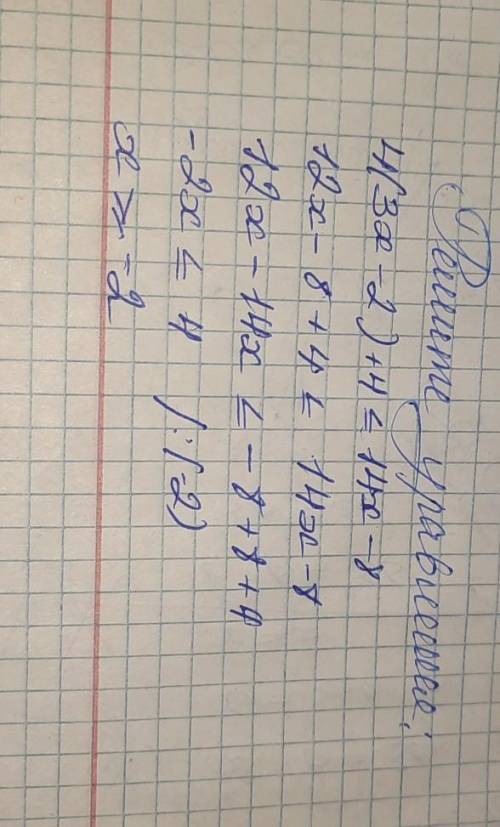 Решите уравнение:
4(3x-2)+4 ≤ 14x-8
12x-8+4 ≤ 14x-8
12x-14x ≤ -8+8+4
-2x ≤ 4 /:(-2)
x ≥ -2